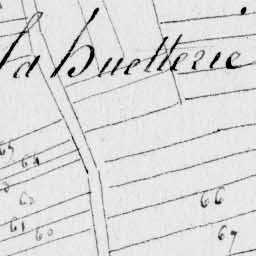 la huetterie
65
64
62
61
60
66
67